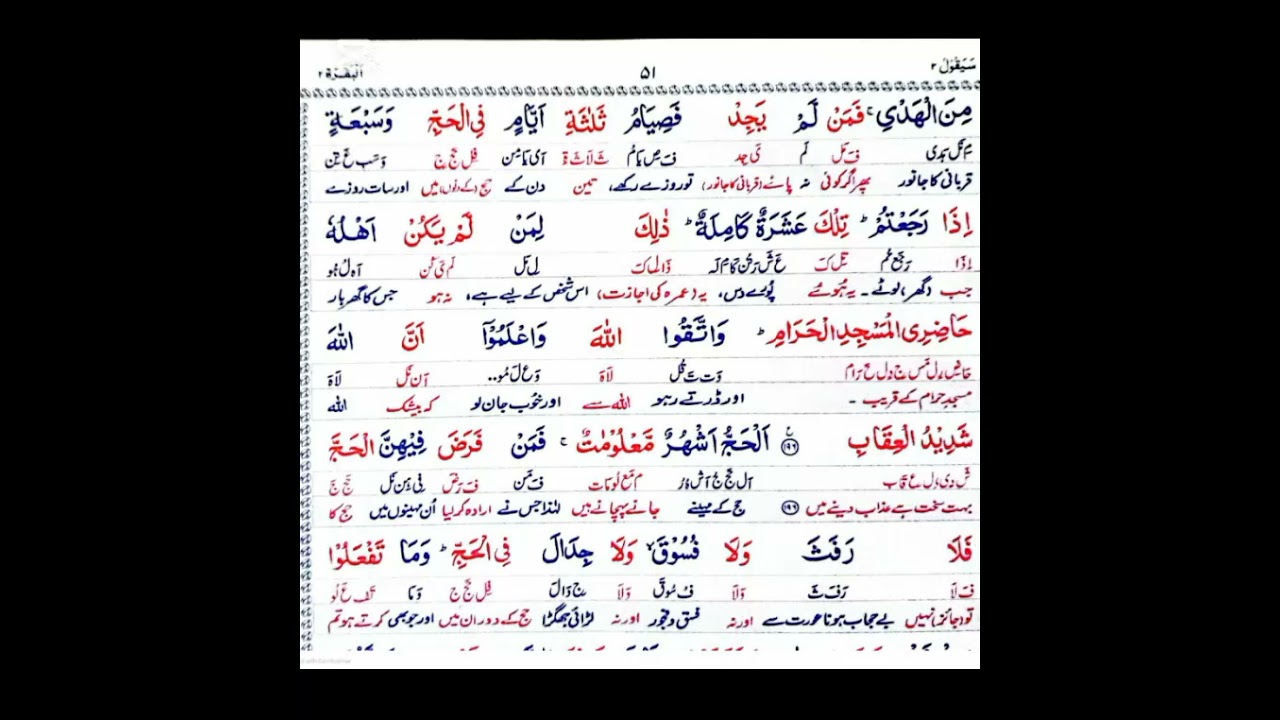 سَيَقُوْلُ ۲ ۵۱ اَلْبَقَرَة ۲
مِنَ الْهَدْيِ ۚ فَمَنْ لَّمْ يَجِدْ فَصِيَامُ ثَلٰثَةِ اَيَّامٍ فِي الْحَجِّ وَسَبْعَةٍ
مِ نَل ہَدی فَ مَل لَم یَ جِد فَ صِ یَا مُ ثَ لَا ثَ ۃِ اَی یَا مِن فِل حَج جِ وَ سَب عَ تِن
قربانی کا جانور پھر اگر کوئی نہ پائے (قربانی کا جانور) تو روزے رکھے، تین دن کے حج (کے دنوں) میں اور سات روزے
اِذَا رَجَعْتُمْ ؕ تِلْكَ عَشَرَةٌ كَامِلَةٌ ؕ ذٰلِكَ لِمَنْ لَّمْ يَكُنْ اَهْلُهٗ
اِذَا رَ جَع تُم تِل کَ عَ شَ رَ تُن کَا مِ لَہ ذَا لِ کَ لِ مَل لَم یَ کُن اَہ لُ ہُو
جب (گھر) لوٹے۔ یہ ہُوئے پُورے دس، یہ (عمرہ کی اجازت) اس شخص کے لیے ہے، نہ ہو جس کا گھر بار
حَاضِرِى الْمَسْجِدِ الْحَرَامِ ؕ وَاتَّقُوا اللّٰهَ وَاعْلَمُوْٓا اَنَّ اللّٰهَ
حَا ضِ رِل مَس جِ دِل حَ رَام وَت تَ قُل لَاہَ وَع لَ مُو.. اَن نَل لَاہَ
مسجدِ حرام کے قریب ۔ اور ڈرتے رہو اللہ سے اور خُوب جان لو کہ بیشک اللہ
شَدِيْدُ الْعِقَابِ ﴿۱۹۶﴾ اَلْحَجُّ اَشْهُرٌ مَّعْلُوْمٰتٌ ۚ فَمَنْ فَرَضَ فِيْهِنَّ الْحَجَّ
شَ دِی دُل عِ قَاب اَل حَج جُ اَش ہُ رُ م مَع لُو مَات فَ مَن فَ رَضَ فِی ہِن نَل حَج جَ
بہت سخت ہے عذاب دینے میں ﴿۱۹۶﴾ حج کے مہینے جانے پہچانے ہیں لہٰذا جس نے ارادہ کر لیا اُن مہینوں میں حج کا
فَلَا رَفَثَ وَلَا فُسُوْقَ ۙ وَلَا جِدَالَ فِي الْحَجِّ ؕ وَمَا تَفْعَلُوْا
فَ لَا رَ فَ ثَ وَلَا فُ سُو قَ وَلَا جِ دَالَ فِل حَج جِ وَمَا تَف عَ لُو
تو (جائز) نہیں بے حجاب ہونا عورت سے اور نہ فسق و فجور اور نہ لڑائی جھگڑا حج کے دوران میں اور جو بھی کرتے ہو تم